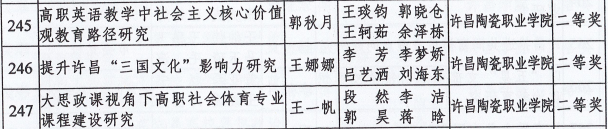 245 高职英语教学中社会主义核心价值观教育路径研究 郭秋月 王琰钧 郭晓仓 王轲茹 余泽栋 许昌陶瓷职业学院 二等奖
246 提升许昌“三国文化”影响力研究 王娜娜 李芳 李梦娇 吕艺洒 刘海东 许昌陶瓷职业学院 二等奖
247 大思政课视角下高职社会体育专业课程建设研究 王一帆 段然 李洁 郭昊 蒋晗 许昌陶瓷职业学院 二等奖